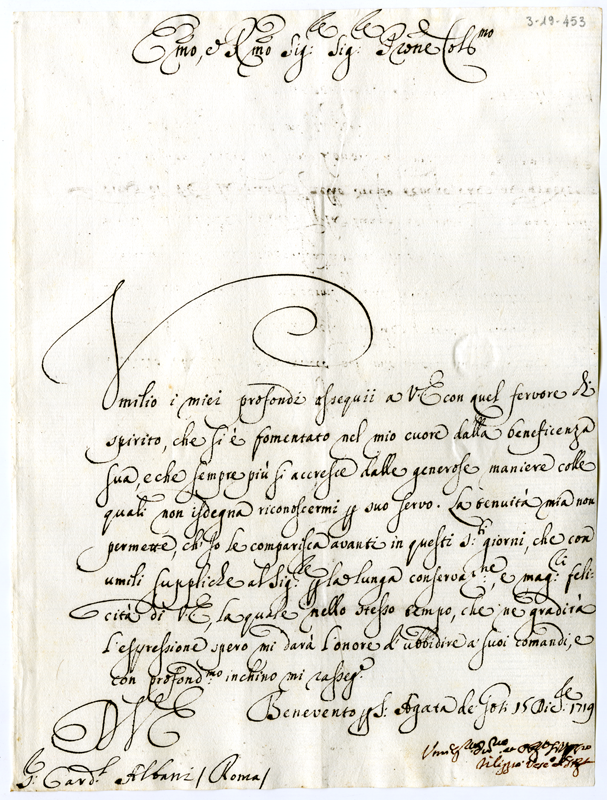 3-19-453
Em̃o, e Rm̃o Sig:re Sig:re Prõne Col:mo
Vmilio i miei profondi ossequii a V.E con quel fervore di
spirito, che si è fomentato nel mio cuore dalla beneficenza
sua, e che sempre più si accresce dalle generose maniere colle
quali non isdegna riconoscermi p suo servo. La tenuità mia non
permette, ch'io le comparisca avanti in questi S:ti giorni, che con
umili suppliche al Sig:re p la lunga conservaz:ne, e mag:ri feli-
cità di V.E. la quale nello stesso tempo, che ne gradirà
l'espressione spero mi darà l'onore d'ubbidire a' suoi comandi, e
con profond:mo inchino mi rasseg:o
D V E
Benevento p S: Agata de' Goti 15 Dic:re 1719
S: Card:l Albani / Roma /
Filippo